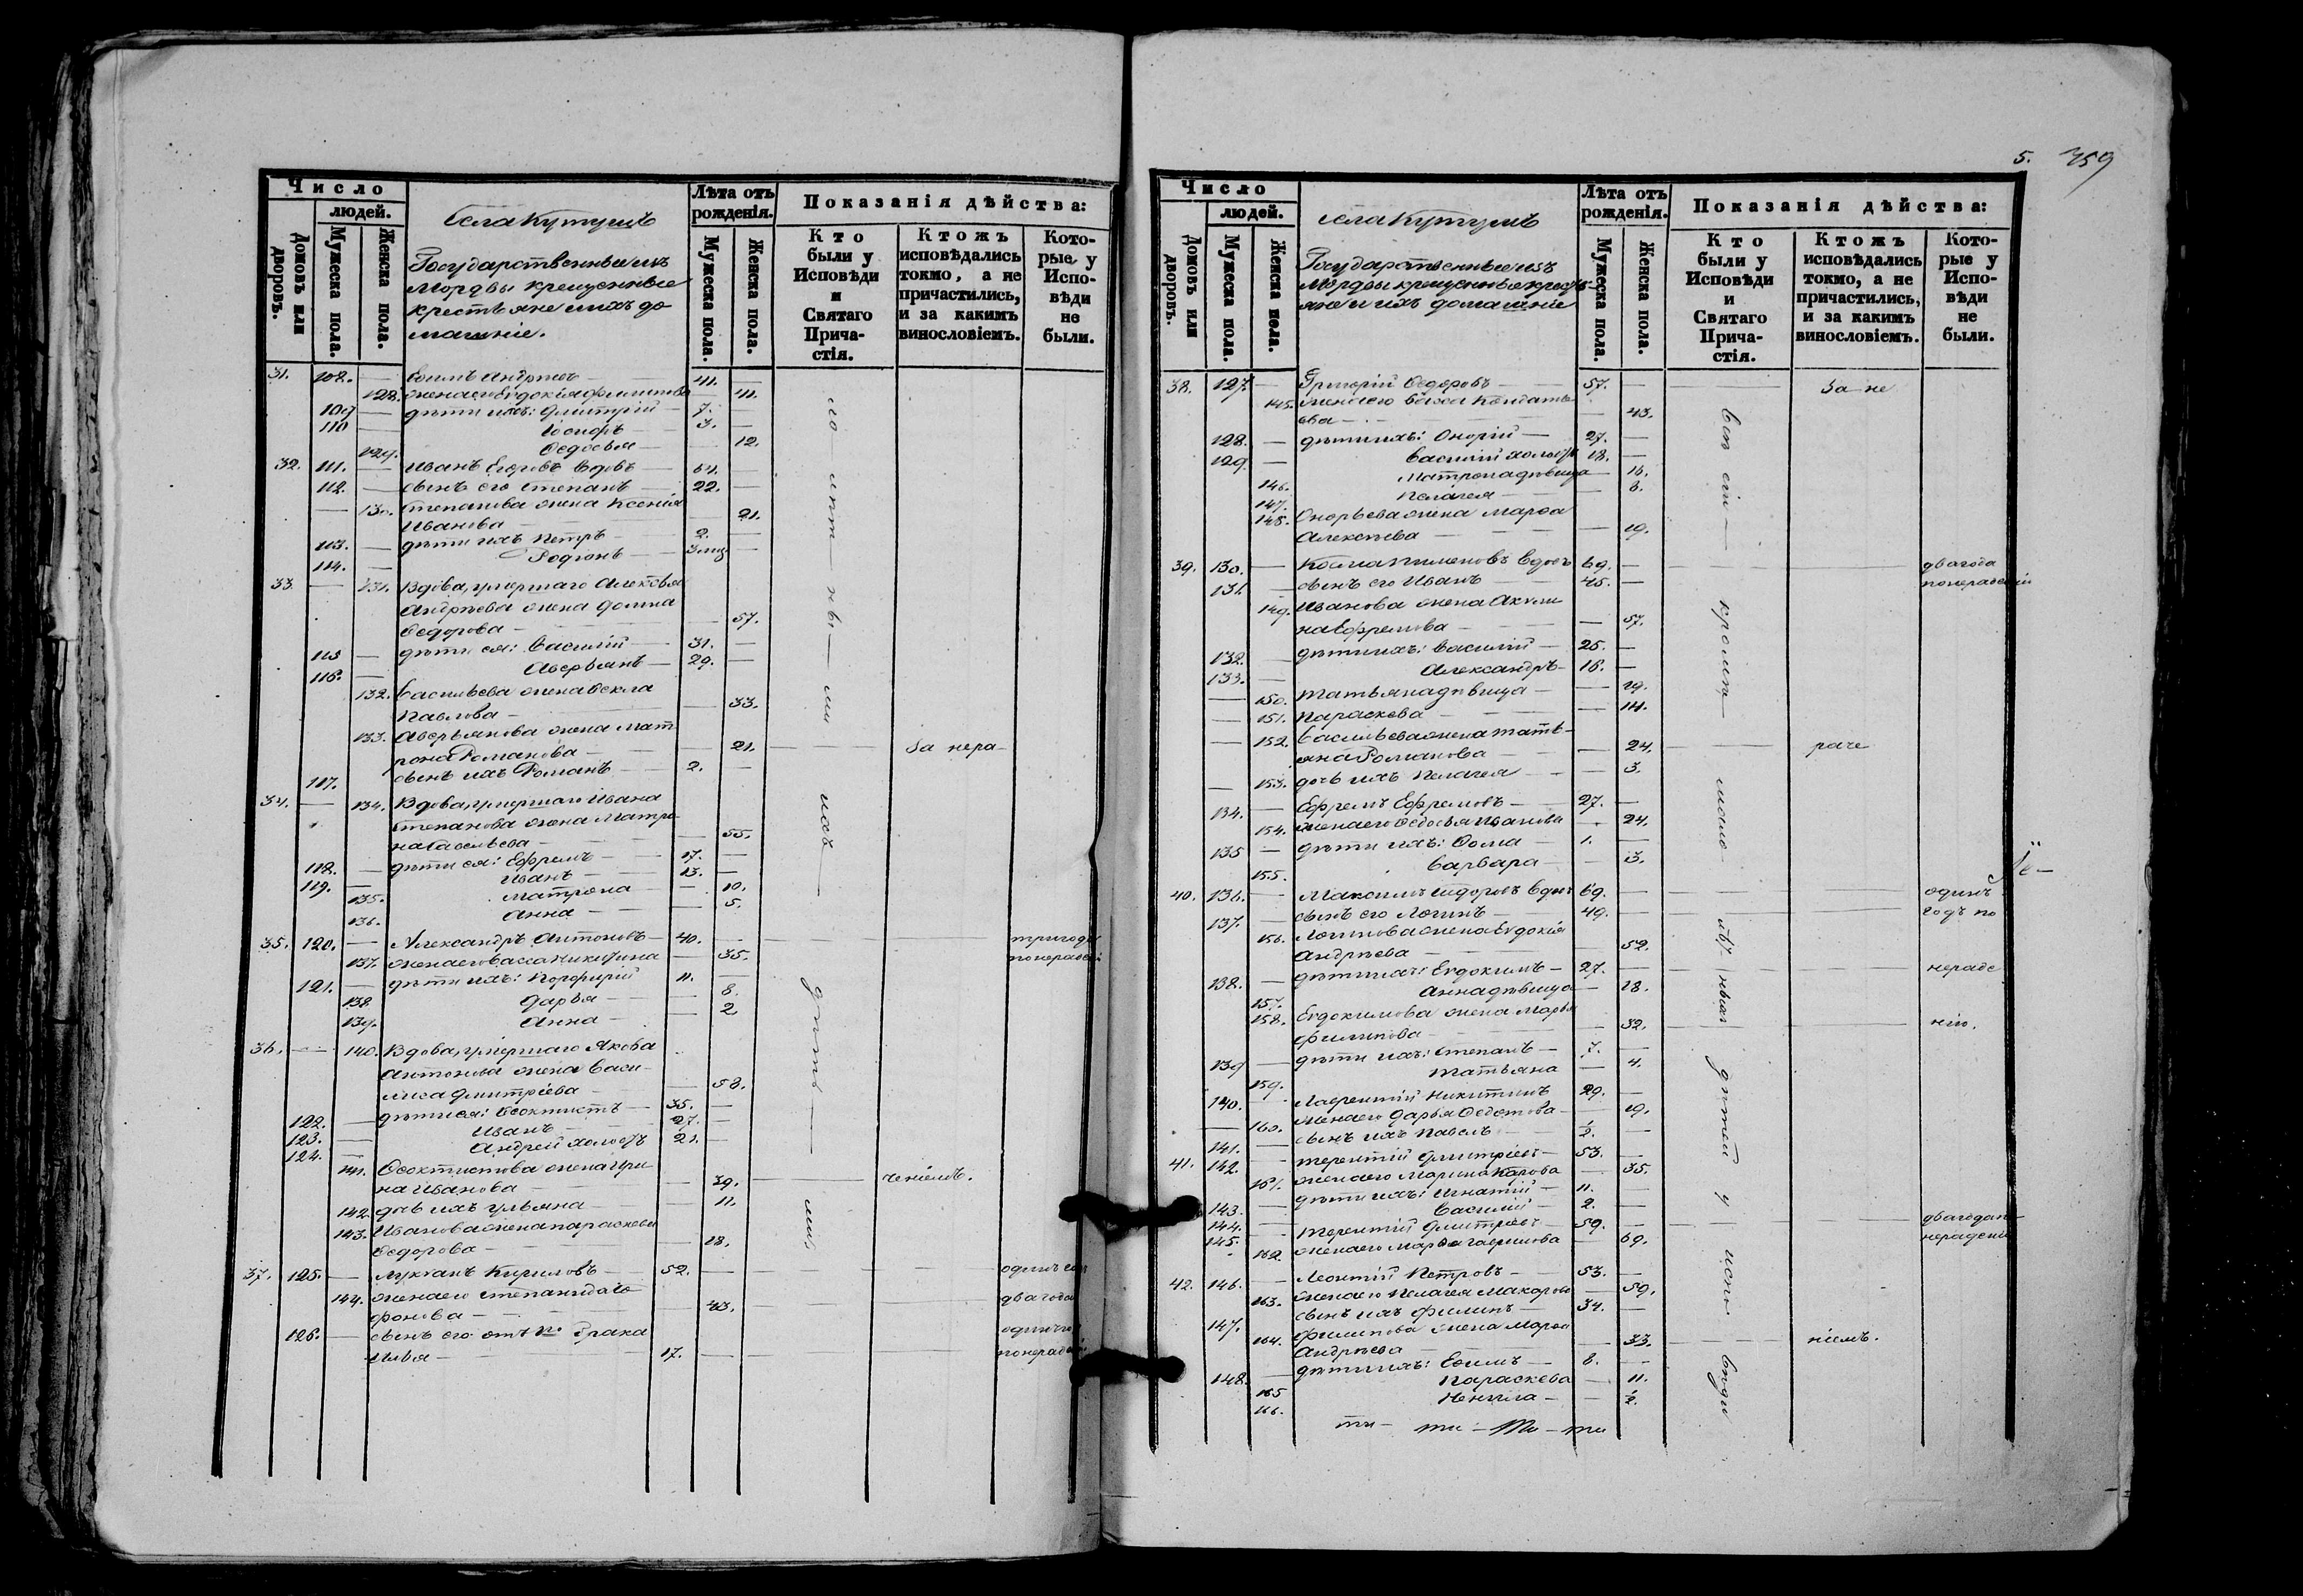 Число
людей.
Домовъ или дворовъ.
Мужеска пола.
Женска пола.
Села Кутушъ
Государственные изъ
Мордвы крещенные
крестьяне и ихъ до
машніе.
Лѣта отъ рожденія.
Мужеска пола.
Женска пола.
Показанія дѣйства:
Кто были у Исповѣди и Святаго Прича-стія.
Ктожъ исповѣдались токмо, а не причастились, и за какимъ винословіемъ.
Кото-рые у Испо-вѣди не были.
31. 108. — Ефимъ Андреевъ — 41. —
128. жена его Евдокія Филипова — 41.
109 — дѣти ихъ: Дмитрій — 7.
110 — Іосифъ — 3. —
129. Ѳедосья — 12.
32. 111. — Иванъ Егоровъ вдовъ — 64.
112. — сынъ его Степанъ — 22. —
— 130. Степанова жена Ксенія
Иванова — 21.
113. — дѣти ихъ Петръ — 2. —
114. — Родіонъ —
33. — 131. Вдова, умершаго
Андреева жена Домна
Ѳедорова — 57.
115 — дѣти ея: Василій — 31. —
116. — Аверьянъ — 29. —
132. Васильева жена Ѳекла
Павлова — 33.
133. Аверьянова жена Мат
рона Романова — 21. — За нера-
117. сынъ ихъ Романъ — 2. —
34. — 134. Вдова, умершаго Ивана
Степанова жена Матре
на Савельева — 55.
118. — дѣти ея: Ефремъ — 17. —
119. — Иванъ — 13. —
135. Матрена — 10.
136. Анна — 5.
35. 120. — Александръ Антоновъ — 40. — три года
137. жена его Васса Никитина — 35. по нераде
121. — дѣти ихъ: Порфирій 11. —
138. Дарья — 8.
139. Анна — 2
36. — 140. Вдова, умершаго Якова
Антонова жена Васи-
лиса Дмитріева — 58.
122. — дѣти ея: Ѳеоктистъ — 35. —
123. — Иванъ — 27. —
124. — Андрей холостъ 21. —
141. Ѳеоктистова жена Ири-
на Иванова — 39. — ченіемъ.
142. дочь ихъ Ульяна — 11.
143. Иванова жена Параскева
Ѳедорова — 18.
37. 125. — Лукьянъ Кириловъ — 52. — одинъ годъ
144. жена его Степанида
фонова — 43. — два года
126. — сынъ его отъ 1го брака
Илья — 17. — по нераде
5. 759
Число
людей.
Домовъ или дворовъ.
Мужеска пола.
Женска пола.
Села Кутушъ
Государственные изъ
Мордвы крещенные кресть-
яне и ихъ домашніе
Лѣта отъ рожденія.
Мужеска пола.
Женска пола.
Показанія дѣйства:
Кто были у Исповѣди и Святаго Прича-стія.
Ктожъ исповѣдались токмо, а не причастились, и за какимъ винословіемъ.
Кото-рые у Испо-вѣди не были.
38. 127. — Григорій Ѳедоровъ — 57. — За не
145. жена его Васса Кондать
ева — 43.
128. — дѣти ихъ: Онорій — 27. —
129. — Василій холостъ 18. —
146. Матрона дѣвица — 16.
147. Пелагея — 8.
148. Онорьева жена Марѳа
Алексѣева — 19.
39. 130. — Косма Пименовъ вдовъ 69. — два года
131. — сынъ его Иванъ — 45. — по нерадению
149. Иванова жена Акули
на Ефремова — 57.
132. — дѣти ихъ: Василій — 25. —
133. — Александръ — 16. —
150. Татьяна дѣвица — 19.
— 151. Параскева — 14.
— 152. Васильева жена Тать-
яна Романова — 24. — раче
— 153. дочь ихъ Пелагея — 3.
134. — Ефремъ Ефремовъ — 27. —
154. жена его Ѳедосья Иванова 24.
135 — дѣти ихъ: Ѳома — 1. —
155. Варвара — 3.
40. 136. — Максимъ Сидоровъ вдовъ 69. — одинъ
137. — сынъ его Логинъ — 49. — годъ по
156. Логинова жена Евдокія
Андреева — 52.
138. — дѣти ихъ: Евдокимъ — 27. — нераде
157. Анна дѣвица — 18.
158. Евдокимова жена Марья
Филипова — 32. — нію.
139 — дѣти ихъ: Степанъ — 7. —
159. Татьяна — 4.
140. Лаврентій Никитинъ 29. —
160. жена его Дарья Ѳедотова — 19.
141. — сынъ ихъ Павелъ — ½. —
41. 142. Терентій Дмитріевъ — 53. —
161. жена его Марина Карпова — 35.
143. — дѣти ихъ: Игнатій — 11. —
144. — Василій — 2. —
145. Терентій Дмитріевъ — 59. — два года по
162. жена его Марѳа Гаврилова — 69. нерадени
42. 146. — Леонтій Петровъ — 53. —
163. жена его Пелагея Макарова — 59.
147. сынъ ихъ Филипъ — 34. —
164. Филипова жена Марѳа
Андреева — 33. — ніемъ.
148. — дѣти ихъ: Ефимъ — 8. —
165 Параскева — 11.
166. Ненила — ½.